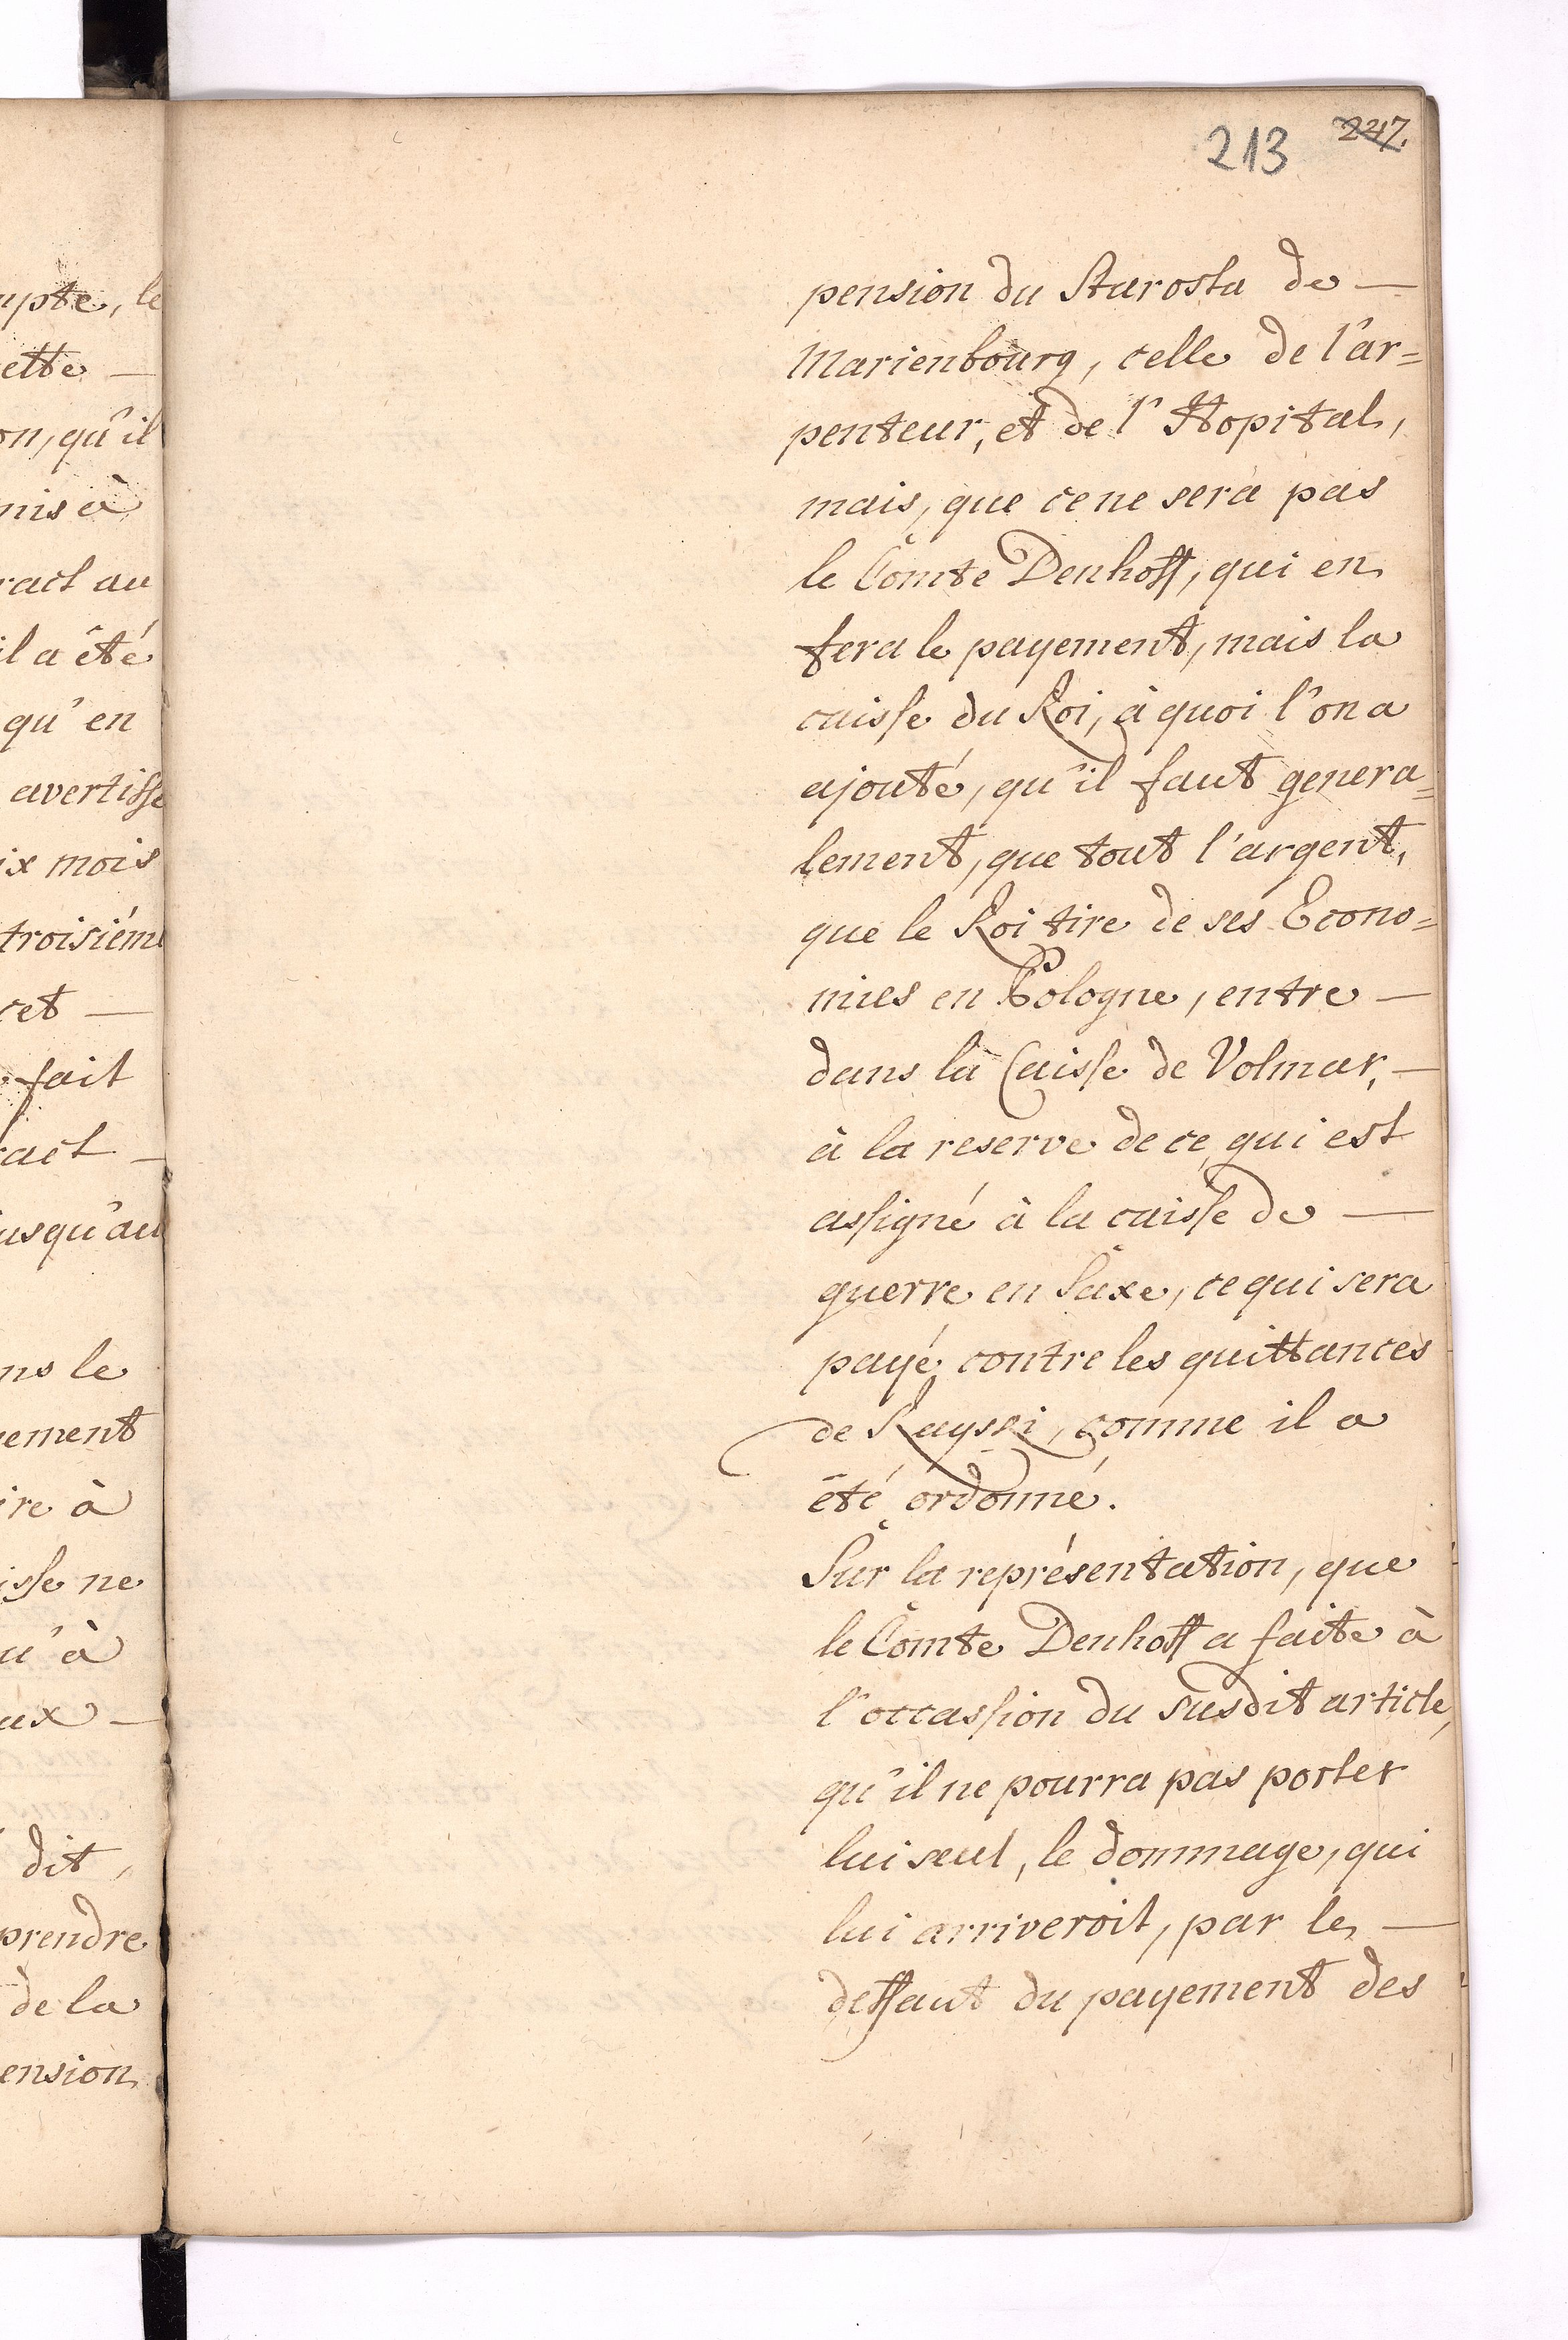 upte, le
ette —
on, qu'il
mis à
ract au
il a été
qu'en
avertisse
ix mois
troisiéme
cet —
fait
ract —
usqu'au
ns le
ement
ire à
isse ne
u'à
aux —
dit,
prendre
de la
ension
213 247.
pension du Starosta de —
Marienbourg, celle de l'ar=
penteur, et de l'Hopital,
mais, que ce ne sera pas
le Comte Denhoff, qui en
fera le payement, mais la
caisse du Roi, à quoi l'on a
ajouté, qu'il faut genera=
lement, que tout l'argent,
que le Roi tire de ses Econo=
mies en Pologne, entre —
dans la Caisse de Volmar, —
à la reserve de ce qui est
assigné à la caisse de —
guerre en Saxe, ce qui sera
payé contre les quittances
de Rayski, comme il a
été ordonné.
Sur la représentation, que
le Comte Denhoff a faite à
l'occassion du susdit article,
qu'il ne pourra pas porter
lui seul, le dommage, qui
lui arriveroit, par le —
deffaut du payement des